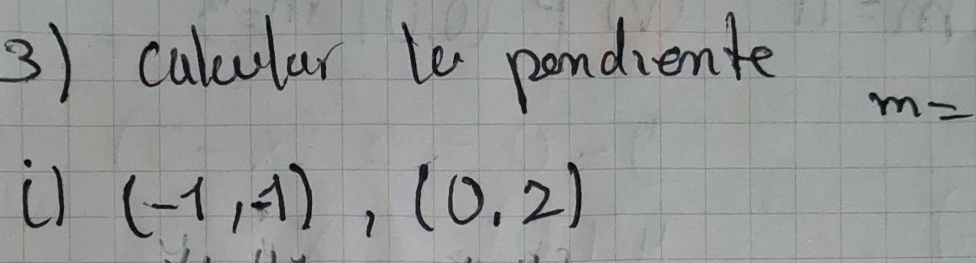 3) calcular la pendiente
m=
i) (-1,-1), (0,2)